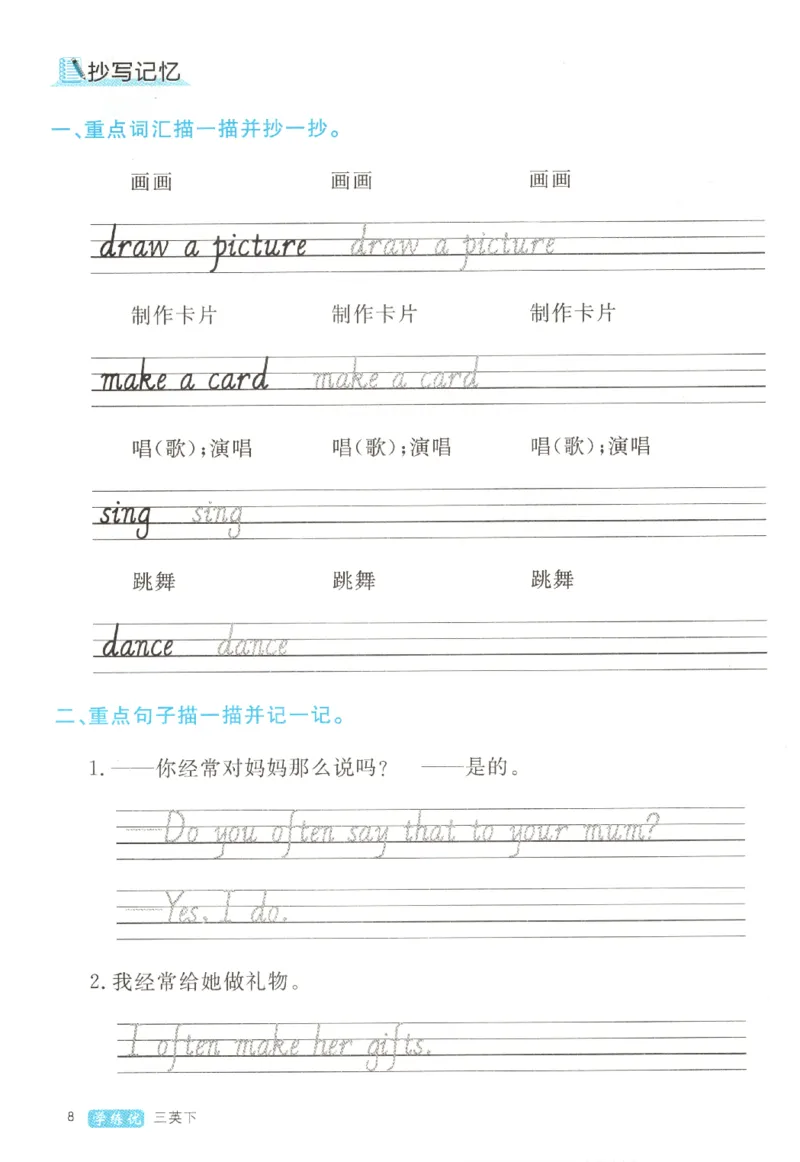 抄写记忆
一、重点词汇描一描并抄一抄。
画画 画画 画画
draw a picture draw a picture
制作卡片 制作卡片 制作卡片
make a card make a card
唱(歌);演唱 唱(歌);演唱 唱(歌);演唱
sing sing
跳舞 跳舞 跳舞
dance dance
二、重点句子描一描并记一记。
1. ——你经常对妈妈那么说吗? ——是的。
—Do you often say that to your mum?
—Yes, I do.
2. 我经常给她做礼物。
I often make her gifts.
8 学练优 三英下